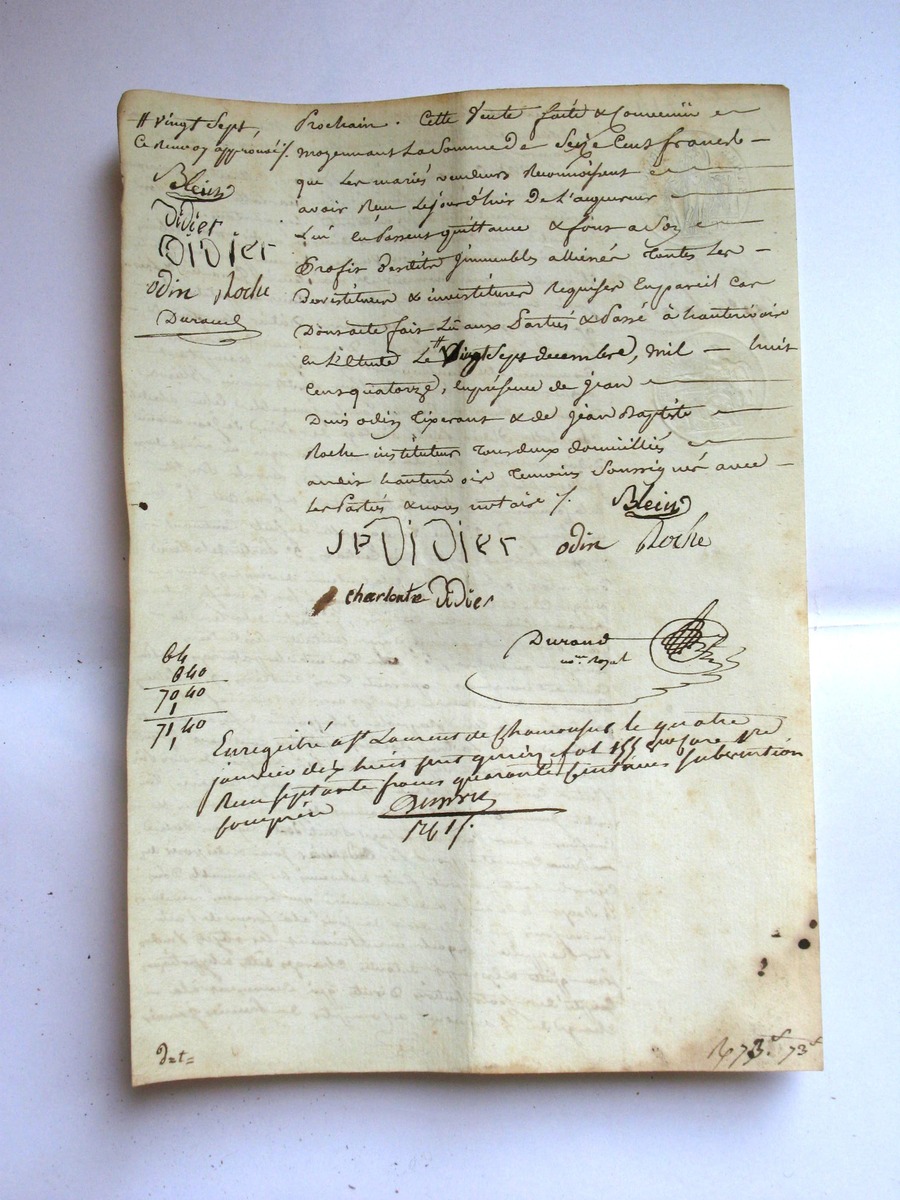 # vingt Sept,
Ce Renvoy approuvé ./.
Blein
Didier
DiDier
odin Roche
Durand
Prochain. Cette Vente faite & Convenüe
moyennant La Somme De Seize Cens francs
que Les mariés vendeurs Reconnoissent
avoir Reçu Cejourd'huir De L'acquereur
Lui en Passent quittance & font a Son
Profit desdits jmmeubles alliéné Toutes Les
Devestitures & investitures Requises En pareil Cas
Dont acte fait Lû aux Parties & Passé à hauterivoire
en L'Etude Le # Vingt Sept decembre, mil huit
Cens quatorze, En présence de jean
Denis odin & de jean Baptiste
Roche instituteur Tous deux domicilliés
audit hauterivoire Temoins Soussignés avec
Les Parties & nous notaire ./. Blein
DiDier odin Roche
charlotte Didier
Durand
nore Royal
64
6 40
70 40
1
71,40
Enregistré a St Laurent de Chamousset le quatre
janvier dix huit cent quinze fol 155 Case 1re
Reçu septante francs quarante Centimes subvention
comprise
73 73